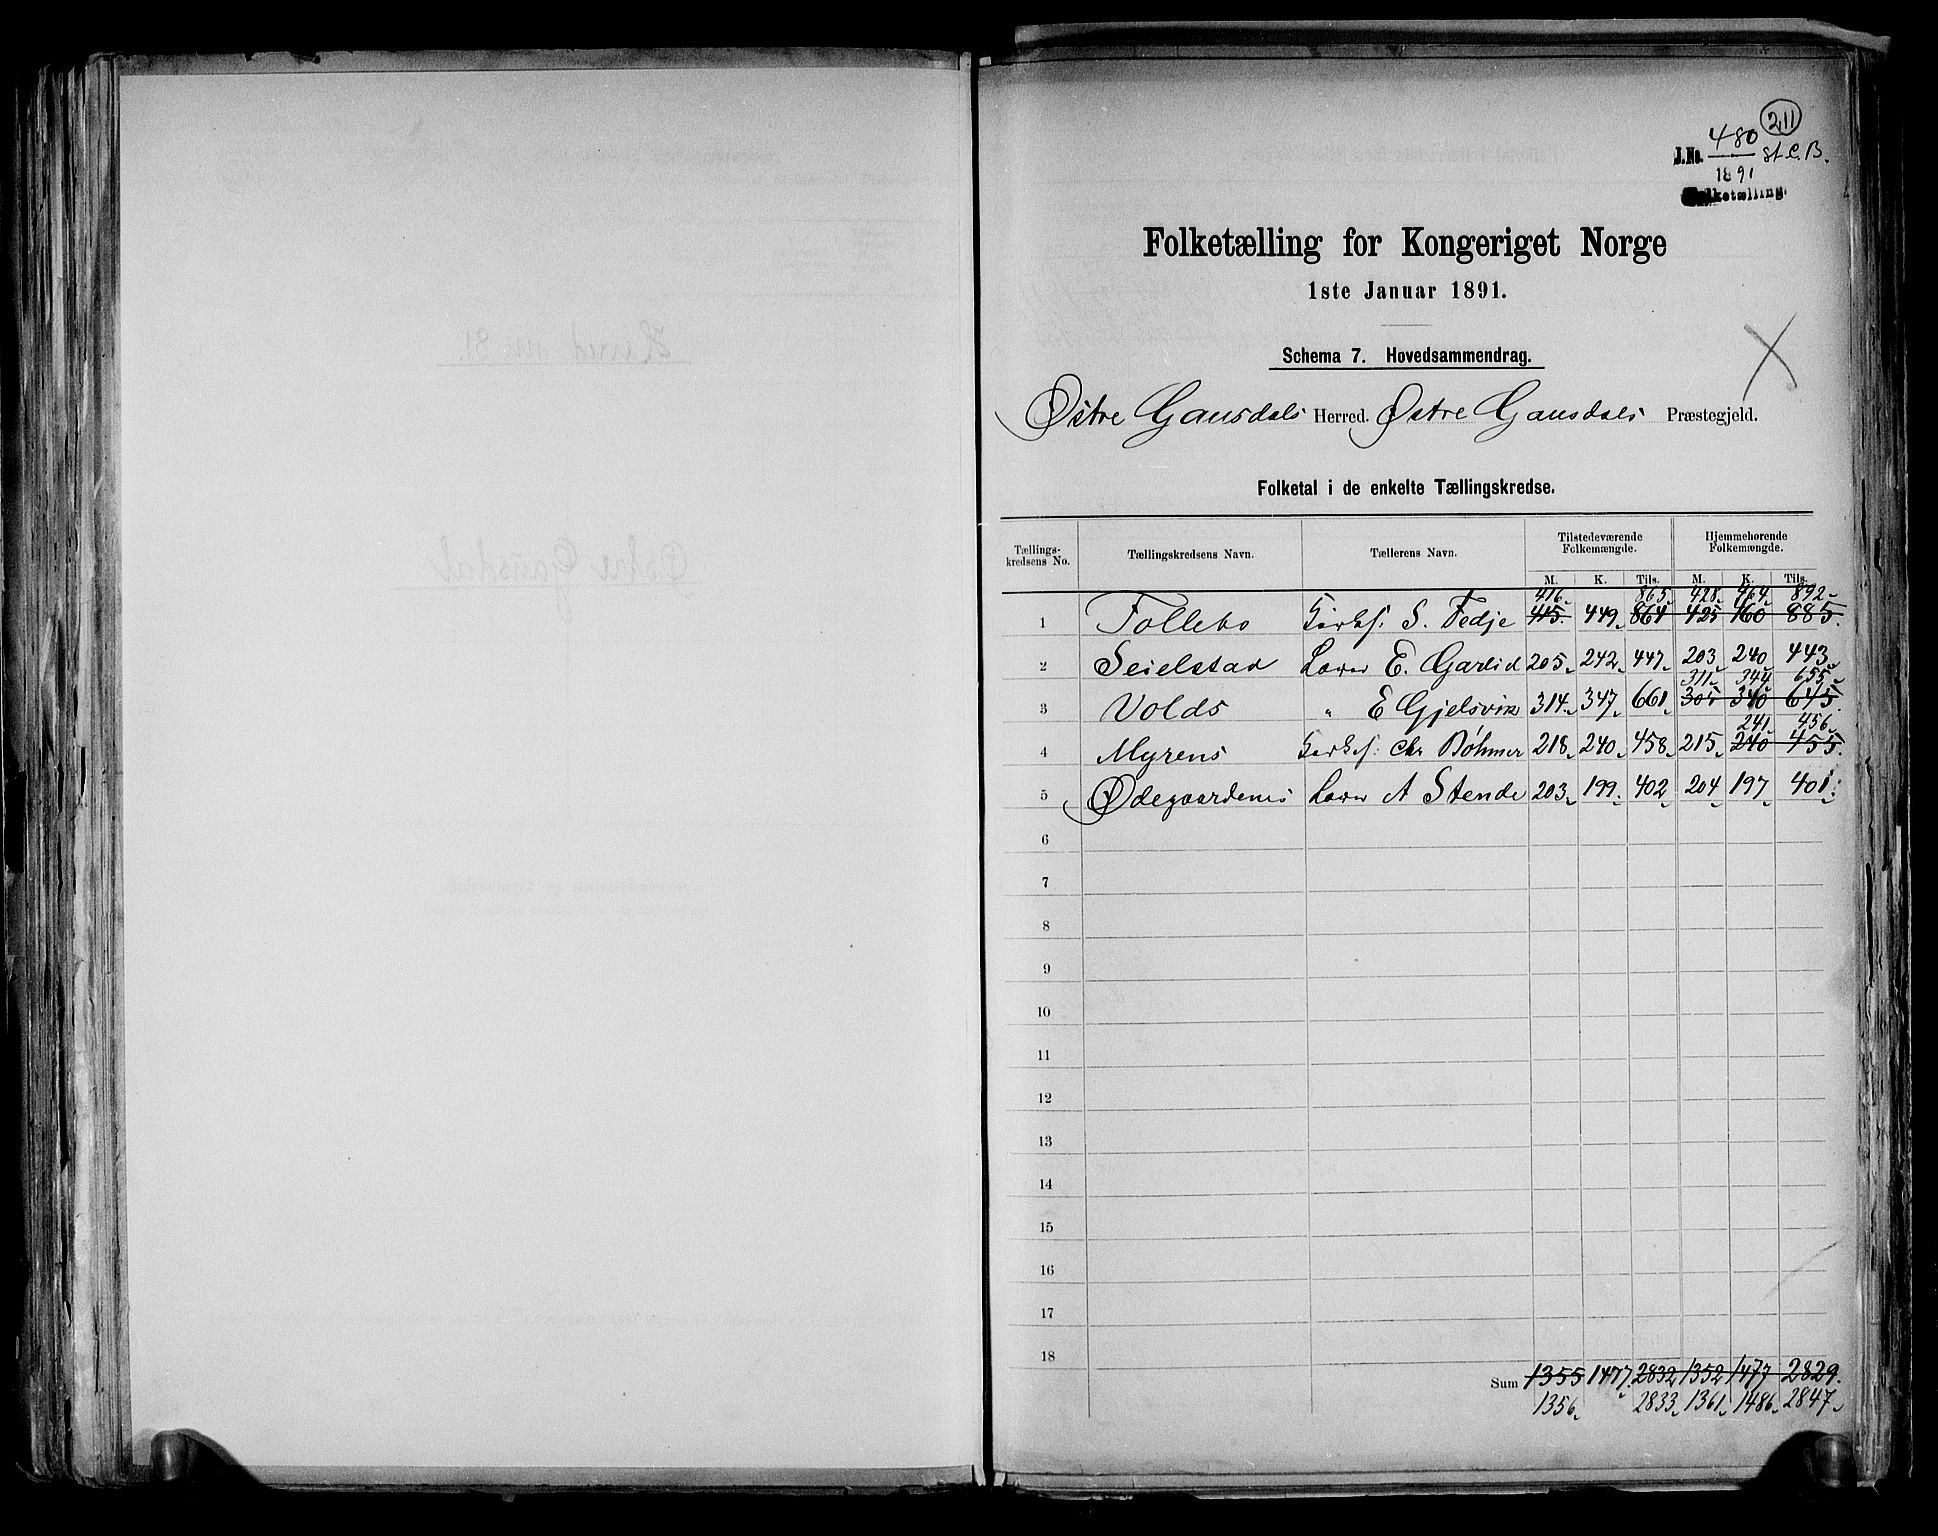 211
J.No. 480 St. C. B.
1891
Folketælling
Folketælling for Kongeriget Norge
1ste Januar 1891.
Schema 7. Hovedsammendrag.
Østre Gausdals Herred. Østre Gausdals Præstegjeld.
Folketal i de enkelte Tællingskredse.
Tællings-kredsens No. Tællingskredsens Navn. Tællerens Navn. Tilstedeværende Folkemængde. Hjemmehørende Folkemængde.
M. K. Tils. M. K. Tils.
416 865 428 464 892
1 Follebo Kirkes: S. Fedje 415 449 864 425 460 885
2 Seielstad Lærer E. Garlid 205 242 447 203 240 443
311 344 655
3 Volds " E Gjelsvik 314 347 661 305 340 645
241 456
4 Myrens Kirkes: Chr Bøhmer 218 240 458 215 240 455
5 Ødegaardenes Lærer A Stende 203 199 402 204 197 401
6
7
8
9
10
11
12
13
14
15
16
17
18
Sum 1355 1477 2832 1352 1477 2829
1356 2833 1361 1486 2847